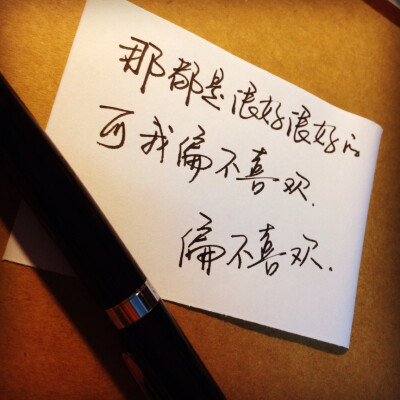 那都是很好很好的
可我偏不喜欢.
偏不喜欢.